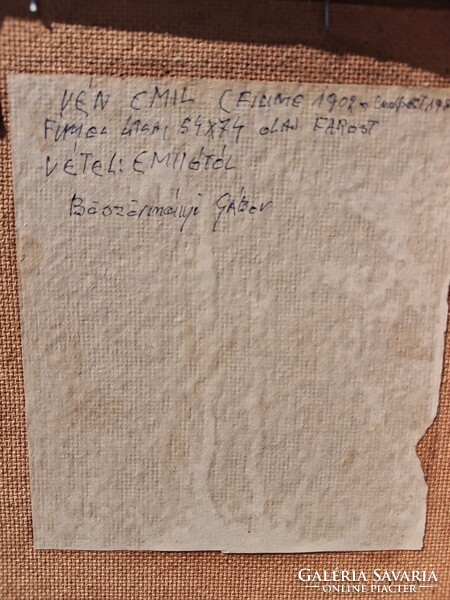 VÉN EMIL (FIUME 1902 - Budapest, 198
FIUMEI UTCA, 54X74 OLAJ FAROST
VÉTEL: EMILTŐL
Böszörményi GÁBOR
GALÉRIA SAVARIA
ONLINE PIACTÉR